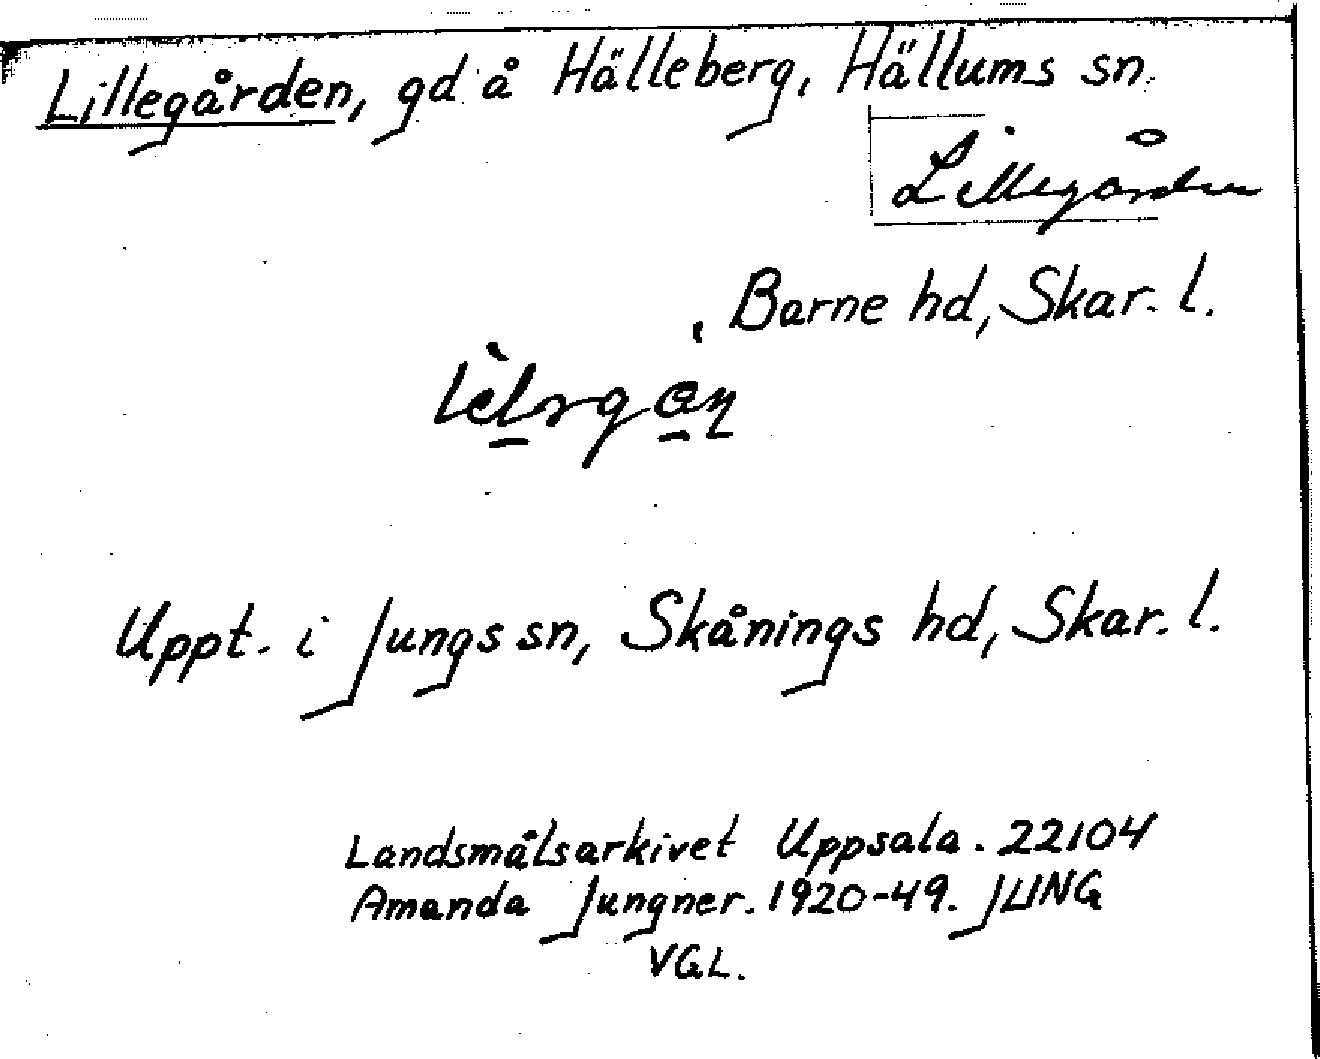 Lillegården, gd å Hälleberg, Hällums sn.
Lillegården
Barne hd, Skar. l.
Uppt. i Jungs sn, Skånings hd, Skar. l.
Landsmålsarkivet Uppsala. 22104
Amanda Jungner. 1920-49. JUNG
VGL.